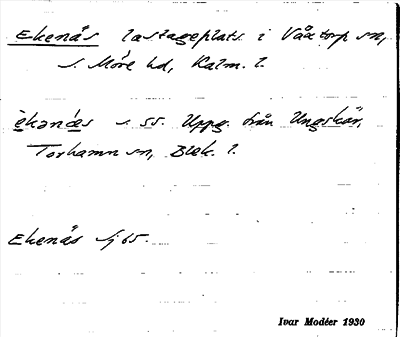 Ekenäs lastageplats i Växtorp sn,
s. Möre hd, Kalm. l.
èkənæ̀s s. ss. Uppg. från Ungskär,
Torhamn sn, Blek. l.
Ekenäs Sj 65.
Ivar Modéer 1930